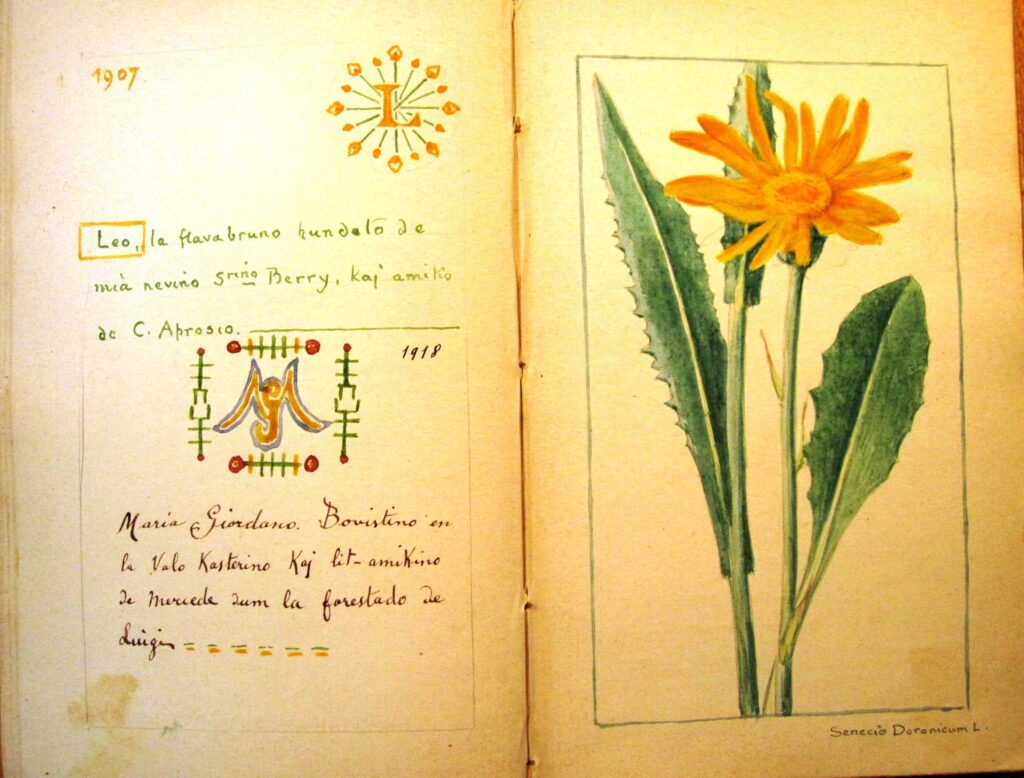 1907
L
Leo, la flavabruno hundeto de
mia nevino Sriño Berry, kaj amiko
de C. Aprosio.
1918
MG
Maria Giordano. Bovistino en
la Valo Kasterino Kaj lit-amikino
de Mercede dum la forestado de
Luigi
Senecio Doronicum L.